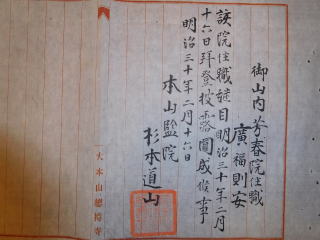 御山内芳春院住職
廣福則安
該院住職継目明治三十年二月
十六日拜登披露圓成候事
明治三十年二月十六日
本山監院
杉本道山
大本山總持寺